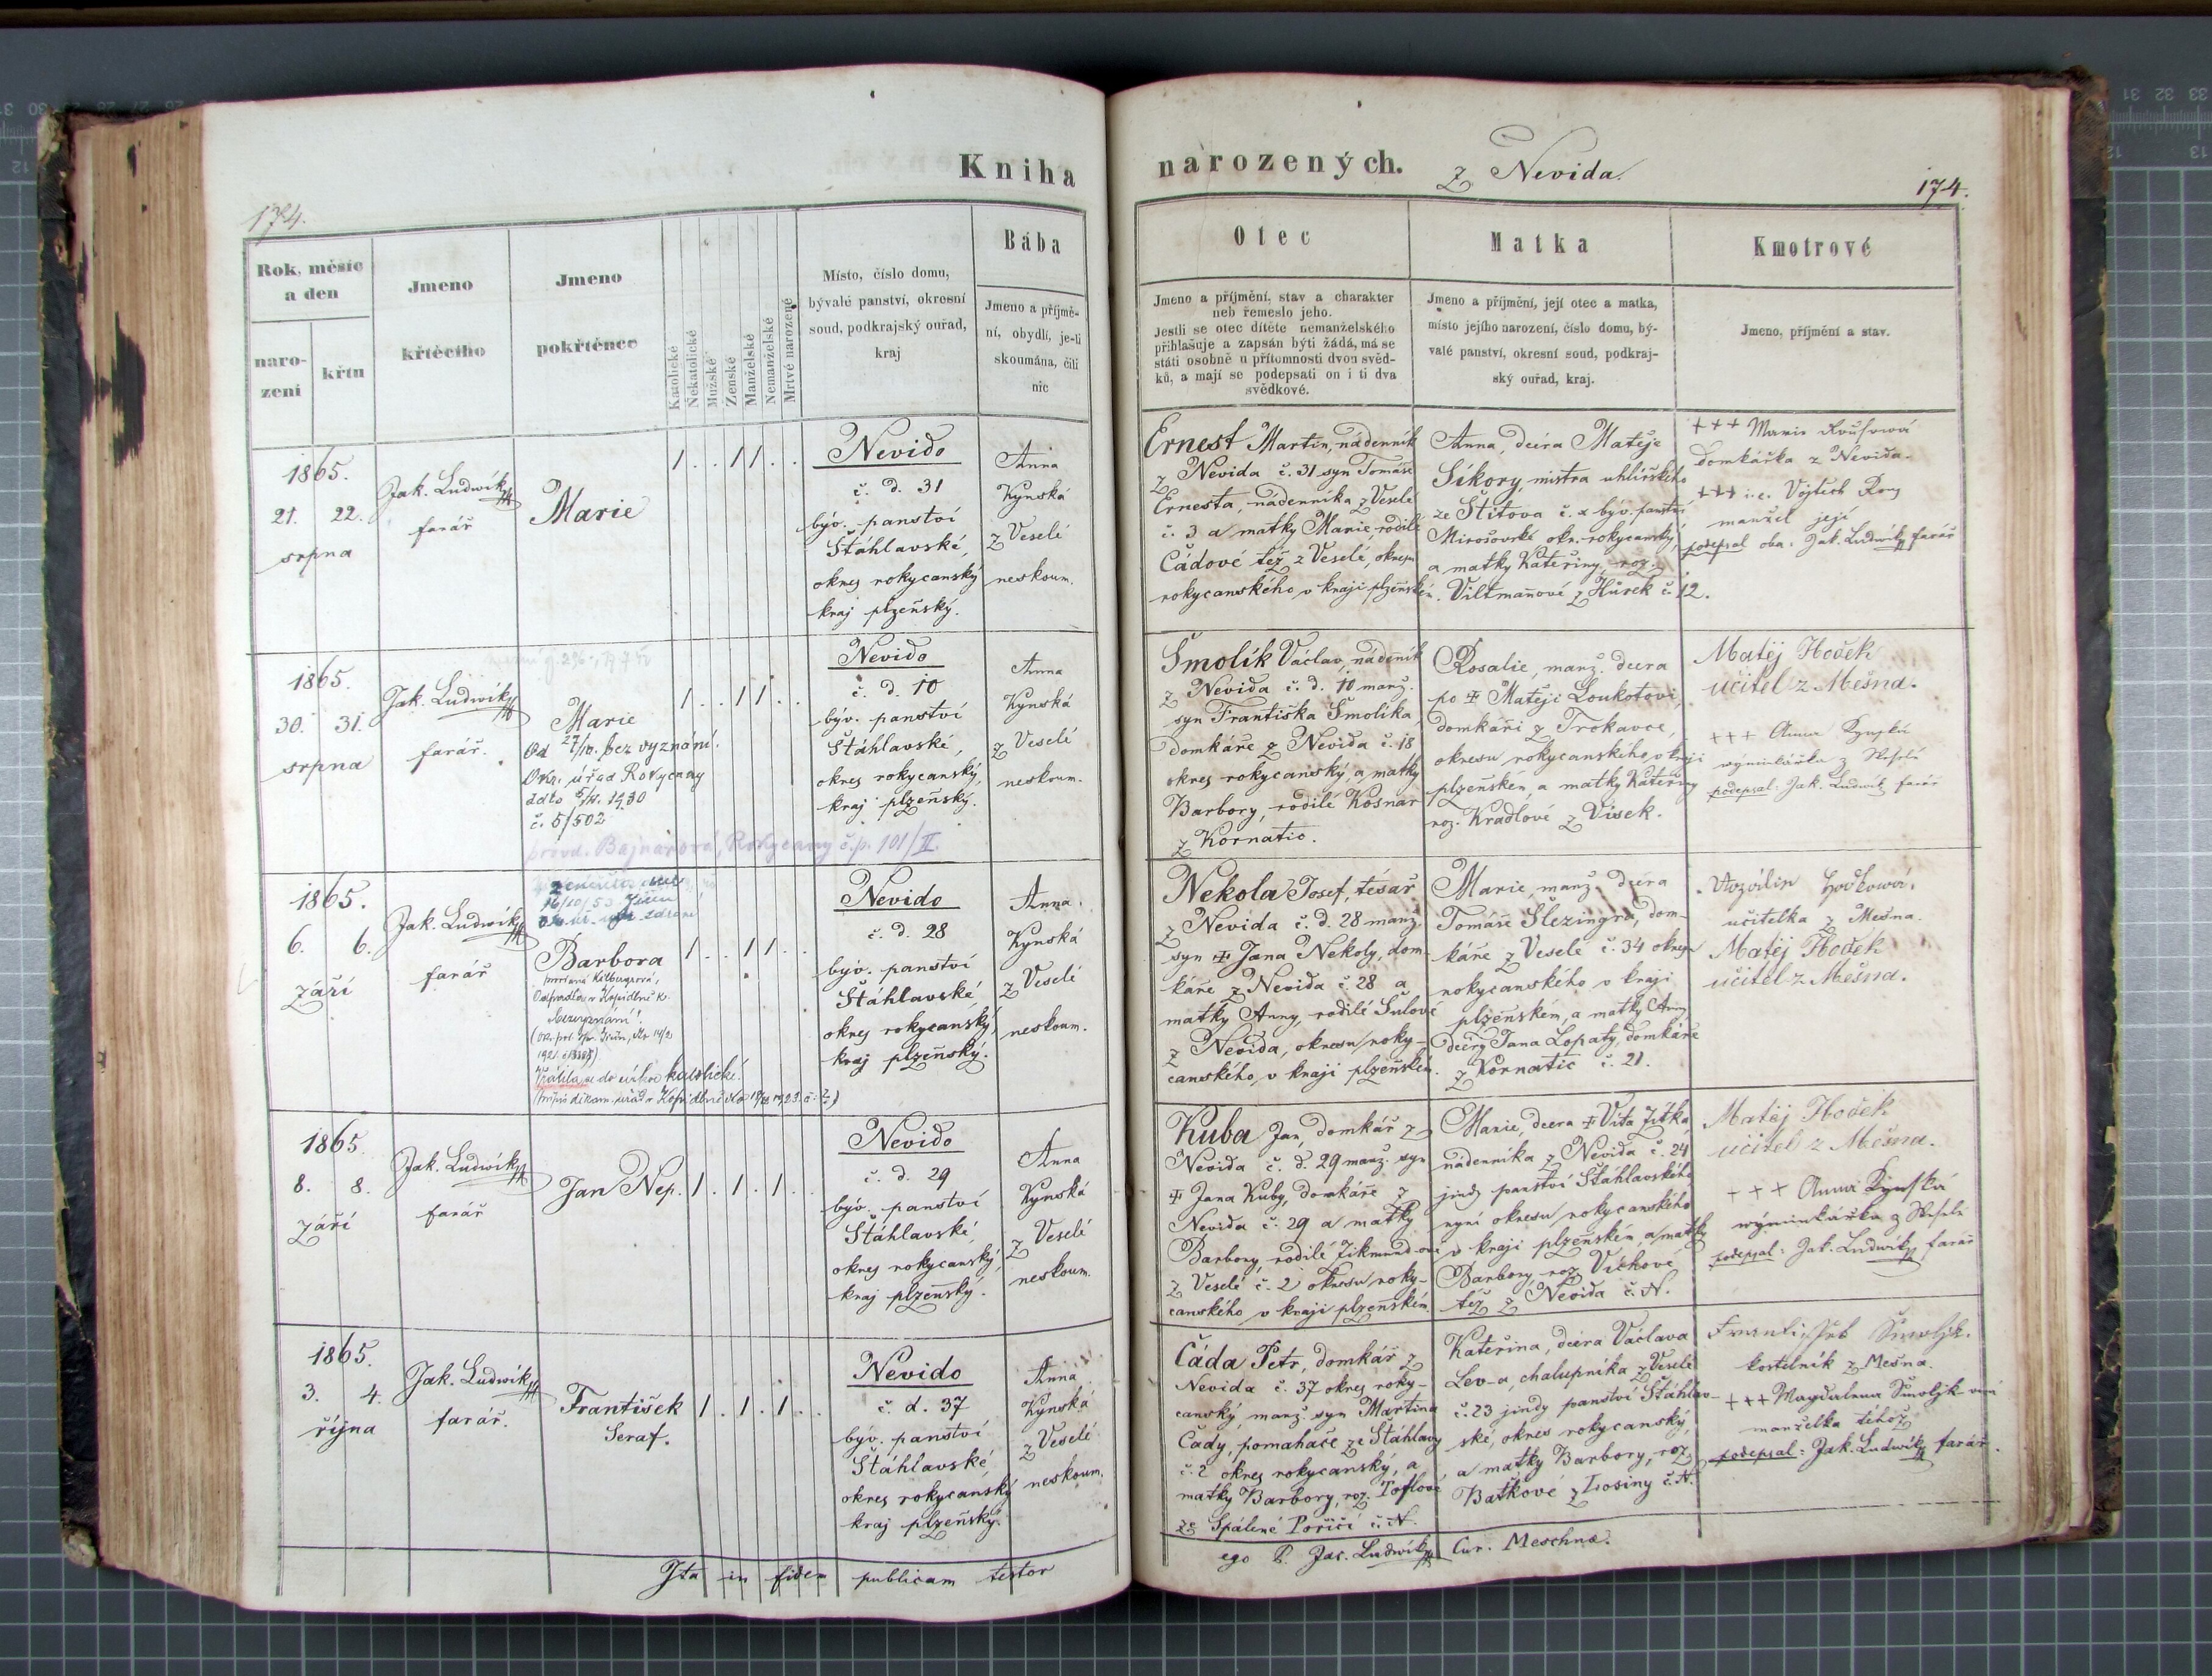 Kniha
174.
Rok, měsíc
a den
naro-
zení
křtu
Jmeno
křtěcího
Jmeno
pokřtěnce
Katolické
Nekatolické
Mužské
Ženské
Manželské
Nemanželské
Mrtvé narozené
Místo, číslo domu,
bývalé panství, okresní
soud, podkrajský ouřad,
kraj
Bába
Jmeno a příjmě-
ní, obydlí, je-li
skoumána, čili
nic
1865.
21. 22.
srpna
Jak. Ludwík
farář
Marie
1 . . 1 1 . .
Nevido
č. d. 31
býv. panství
Štáhlavské,
okres rokycanský
kraj plzeňský.
Anna
Kynská
z Veselé
neskoum.
1865.
30. 31.
srpna
Jak. Ludwík
farář.
Marie
Od 27/IV. bez vyznání.
Okr. úřad Rokycany
č. 5/502
provd. Bajnarová, Rokycany č.p. 101/II.
1 . . 1 1 . .
Nevido
č. d. 10
býv. panství
Štáhlavské,
okres rokycanský,
kraj plzeňský.
Anna
Kynská
z Veselé
neskoum.
1865.
6. 6.
září
Jak. Ludwík
farář
Barbora
Vrátila se do církve katolické.
1 . . 1 1 . .
Nevido
č. d. 28
býv. panství
Štáhlavské
okres rokycanský,
kraj plzeňský.
Anna
Kynská
z Veselé
neskoum.
1865.
8. 8.
září
Jak. Ludwík
farář
Jan Nep.
1 . 1 . 1 . .
Nevido
č. d. 29
býv. panství
Štáhlavské,
okres rokycanský,
kraj plzenský.
Anna
Kynská
z Veselé
neskoum.
1865.
3. 4.
října
Jak. Ludwík
farář.
František
Seraf.
1 . 1 . 1 . .
Nevido
č. d. 37
býv. panství
Štáhlavské
okres rokycanský
kraj plzeňský.
Anna
Kynská
z Veselé
neskoum.
Ita in fidem publicam testor
narozených. z Nevida.
174.
Otec
Jmeno a příjmění, stav a charakter
neb řemeslo jeho.
Jestli se otec dítěte nemanželského
přihlašuje a zapsán býti žádá, má se
státi osobně u přítomnosti dvou svěd-
ků, a mají se podepsati on i ti dva
svědkové.
Matka
Jmeno a příjmění, její otec a matka,
místo jejího narození, číslo domu, bý-
valé panství, okresní soud, podkraj-
ský ouřad, kraj.
Kmotrové
Jmeno, příjmění a stav.
Ernest Martin, nádenník
z Nevida č. 31 syn Tomáše
Ernesta, nádenníka z Veselé
č. 3 a matky Marie, rodilé
Čádové též z Veselé, okresu
rokycanského v kraji plzeňském.
Anna, dcera Matěje
Síkory, mistra uhlířského
ze Štítova č. x býv. panství
Mirošovské okr. rokycanský,
a matky Kateřiny, roz.
Viltmanové z Hůrek č. 12.
+++ Marie
domkářka z Nevida.
+++ i.e. Vojtěch
manžel její
podepsal oba: Jak. Ludwík farář
Smolík Václav, nádenník
z Nevida č. d. 10 manž.
syn Františka Smolíka,
domkáře z Nevida č. 18
okres rokycanský, a matky
Barbory, rodilé Kosnar
z Kornatic.
Rosalie, manž. dcera
po ‡ Matěji Loukotovi,
domkáři z Trokavce,
okresu rokycanského, v kraji
plzeňském, a matky Kateřiny
roz. Kradlové z Vísek.
Matěj Hoček
učitel z Mešna.
+++ Anna Kynská
wýminkářka z Veselé
podepsal: Jak. Ludwík farář
Nekola Josef, tesař
z Nevida č. d. 28 manž.
syn ‡ Jana Nekoly, dom-
káře z Nevida č. 28 a
matky Anny, rodilé Šulové
z Nevida, okresu roky-
canského, v kraji plzeňském.
Marie, manž. dcera
Tomáše Šlezingra, dom-
káře z Veselé č. 34 okresu
rokycanského v kraji
plzeňském, a matky Anny
dcery Jana Lopaty, domkáře
z Kornatic č. 21.
učitelka z Mešna.
Matěj Hoček
učitel z Mešna.
Kuba Jan, domkář z
Nevida č. d. 29 manž. syn
‡ Jana Kuby, domkáře z
Nevida č. 29 a matky
Barbory, rodilé Zikmund-ové
z Veselé č. 2 okresu roky-
canského v kraji plzeňském.
Marie, dcera ‡ Víta Zítka,
nádenníka z Nevida č. 24
jindy panství Štáhlavského
nyní okresu rokycanského
v kraji plzeňském, a matky
Barbory, roz. Vlčkové
též z Nevida č. N.
Matěj Hoček
učitel z Mešna.
+++ Anna Kynská
wýminkářka z Veselé
podepsal: Jak. Ludwík farář
Čáda Petr, domkář z
Nevida č. 37 okres roky-
canský, manž. syn Martina
Čády, pomahače ze Štáhlavy
č. 2 okres rokycanský, a
matky Barbory, roz. Toflové
ze Spálené Poříčí č. N.
Kateřina, dcera Václava
Lev-a, chalupníka z Veselé
č. 23 jindy panství Štáhlav-
ské, okres rokycanský,
a matky Barbory, roz.
Baťkové z Losiny č. N.
František Smolík.
kostelník z Mešna.
+++ Magdalena Smolík-ová
manželka téhož
podepsal: Jak. Ludwík farář.
ego P. Jac. Ludwík Cur. Meschnae.